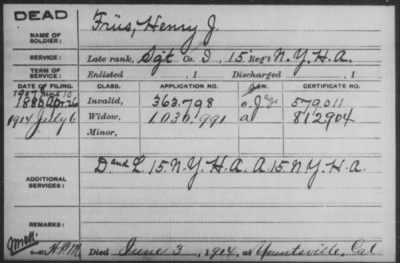 DEAD
NAME OF SOLDIER: Friis, Henry J.
SERVICE: Late rank, Sgt Co. D, 15 Reg't N.Y.H.A.
TERM OF SERVICE: Enlisted , 1 Discharged , 1
DATE OF FILING. CLASS. APPLICATION NO. LAW. CERTIFICATE NO.
1907 June 10
1880 Apr 26 Invalid, 363.798 579011
1904 July 6 Widow, 1.030.991 a 812904
Minor,
ADDITIONAL SERVICES: D and L. 15. N.Y.H.A. A. 15. N.Y.H.A.
REMARKS:
H.P.M. Died June 3, 1904, at Yountsville, Cal